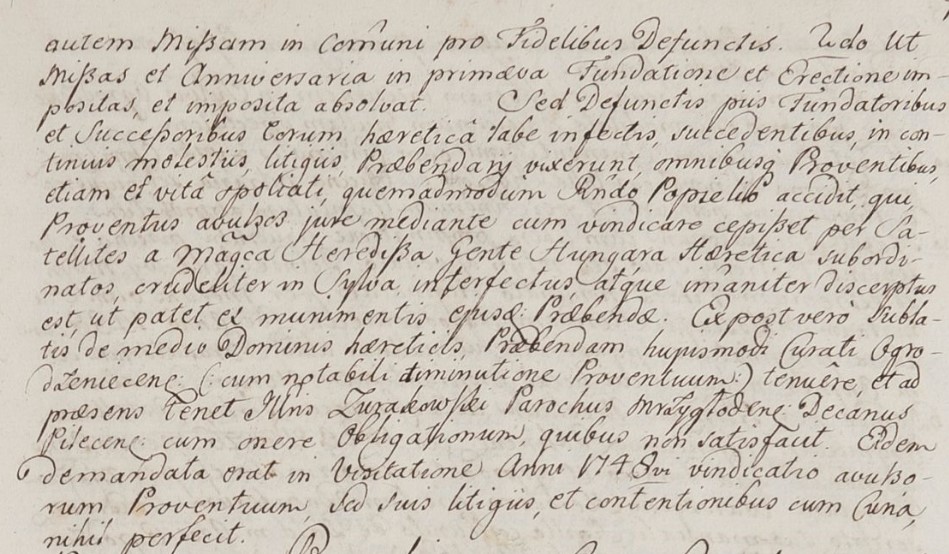 autem Mißam in Com̃uni pro Fidelibus Defunctis. 2do Ut
Mißas et Anniversaria in primæva Fundatione et Erectione im-
positas, et imposita absolvat. Sed Defunctis piis Fundatoribus
et Succeßoribus Eorum, hæreticâ labe infectis, succedentibus, in con-
tinuis molestiis, litigiis, Præbendarij vixerunt, omnibusq; Proventibus,
etiam et vitâ spoliati, quemadmodum Rndo Popielis accidit, qui
Proventus avulsos jure mediante cum vindicare cepißet per Sa-
tellites a Magca Heredißa Gente Hungara Hæretica subordi-
natos, crudeliter in Sylva interfectus, atque im̃aniter discerptus
est, ut patet ex munimentis ejusd: Præbendæ. Ex post verò Subla-
tis de medio Dominis hæreticis, Præbendam hujusmodi Curati Ogro-
dzeniecen: (: cum notabili diminutione Proventuum :) tenuêre, et ad
præsens tenet Illris Zurakowski Parochus Mrzyglodens Decanus
Pilecens: cum onere Obligationum, quibus non satisfacit. Eidem
demandata erat in Visitatione Anni 1748vi vindicatio avulso-
rum Proventuum, sed suis litigiis, et contentionibus cum Curia,
nihil perfecit.